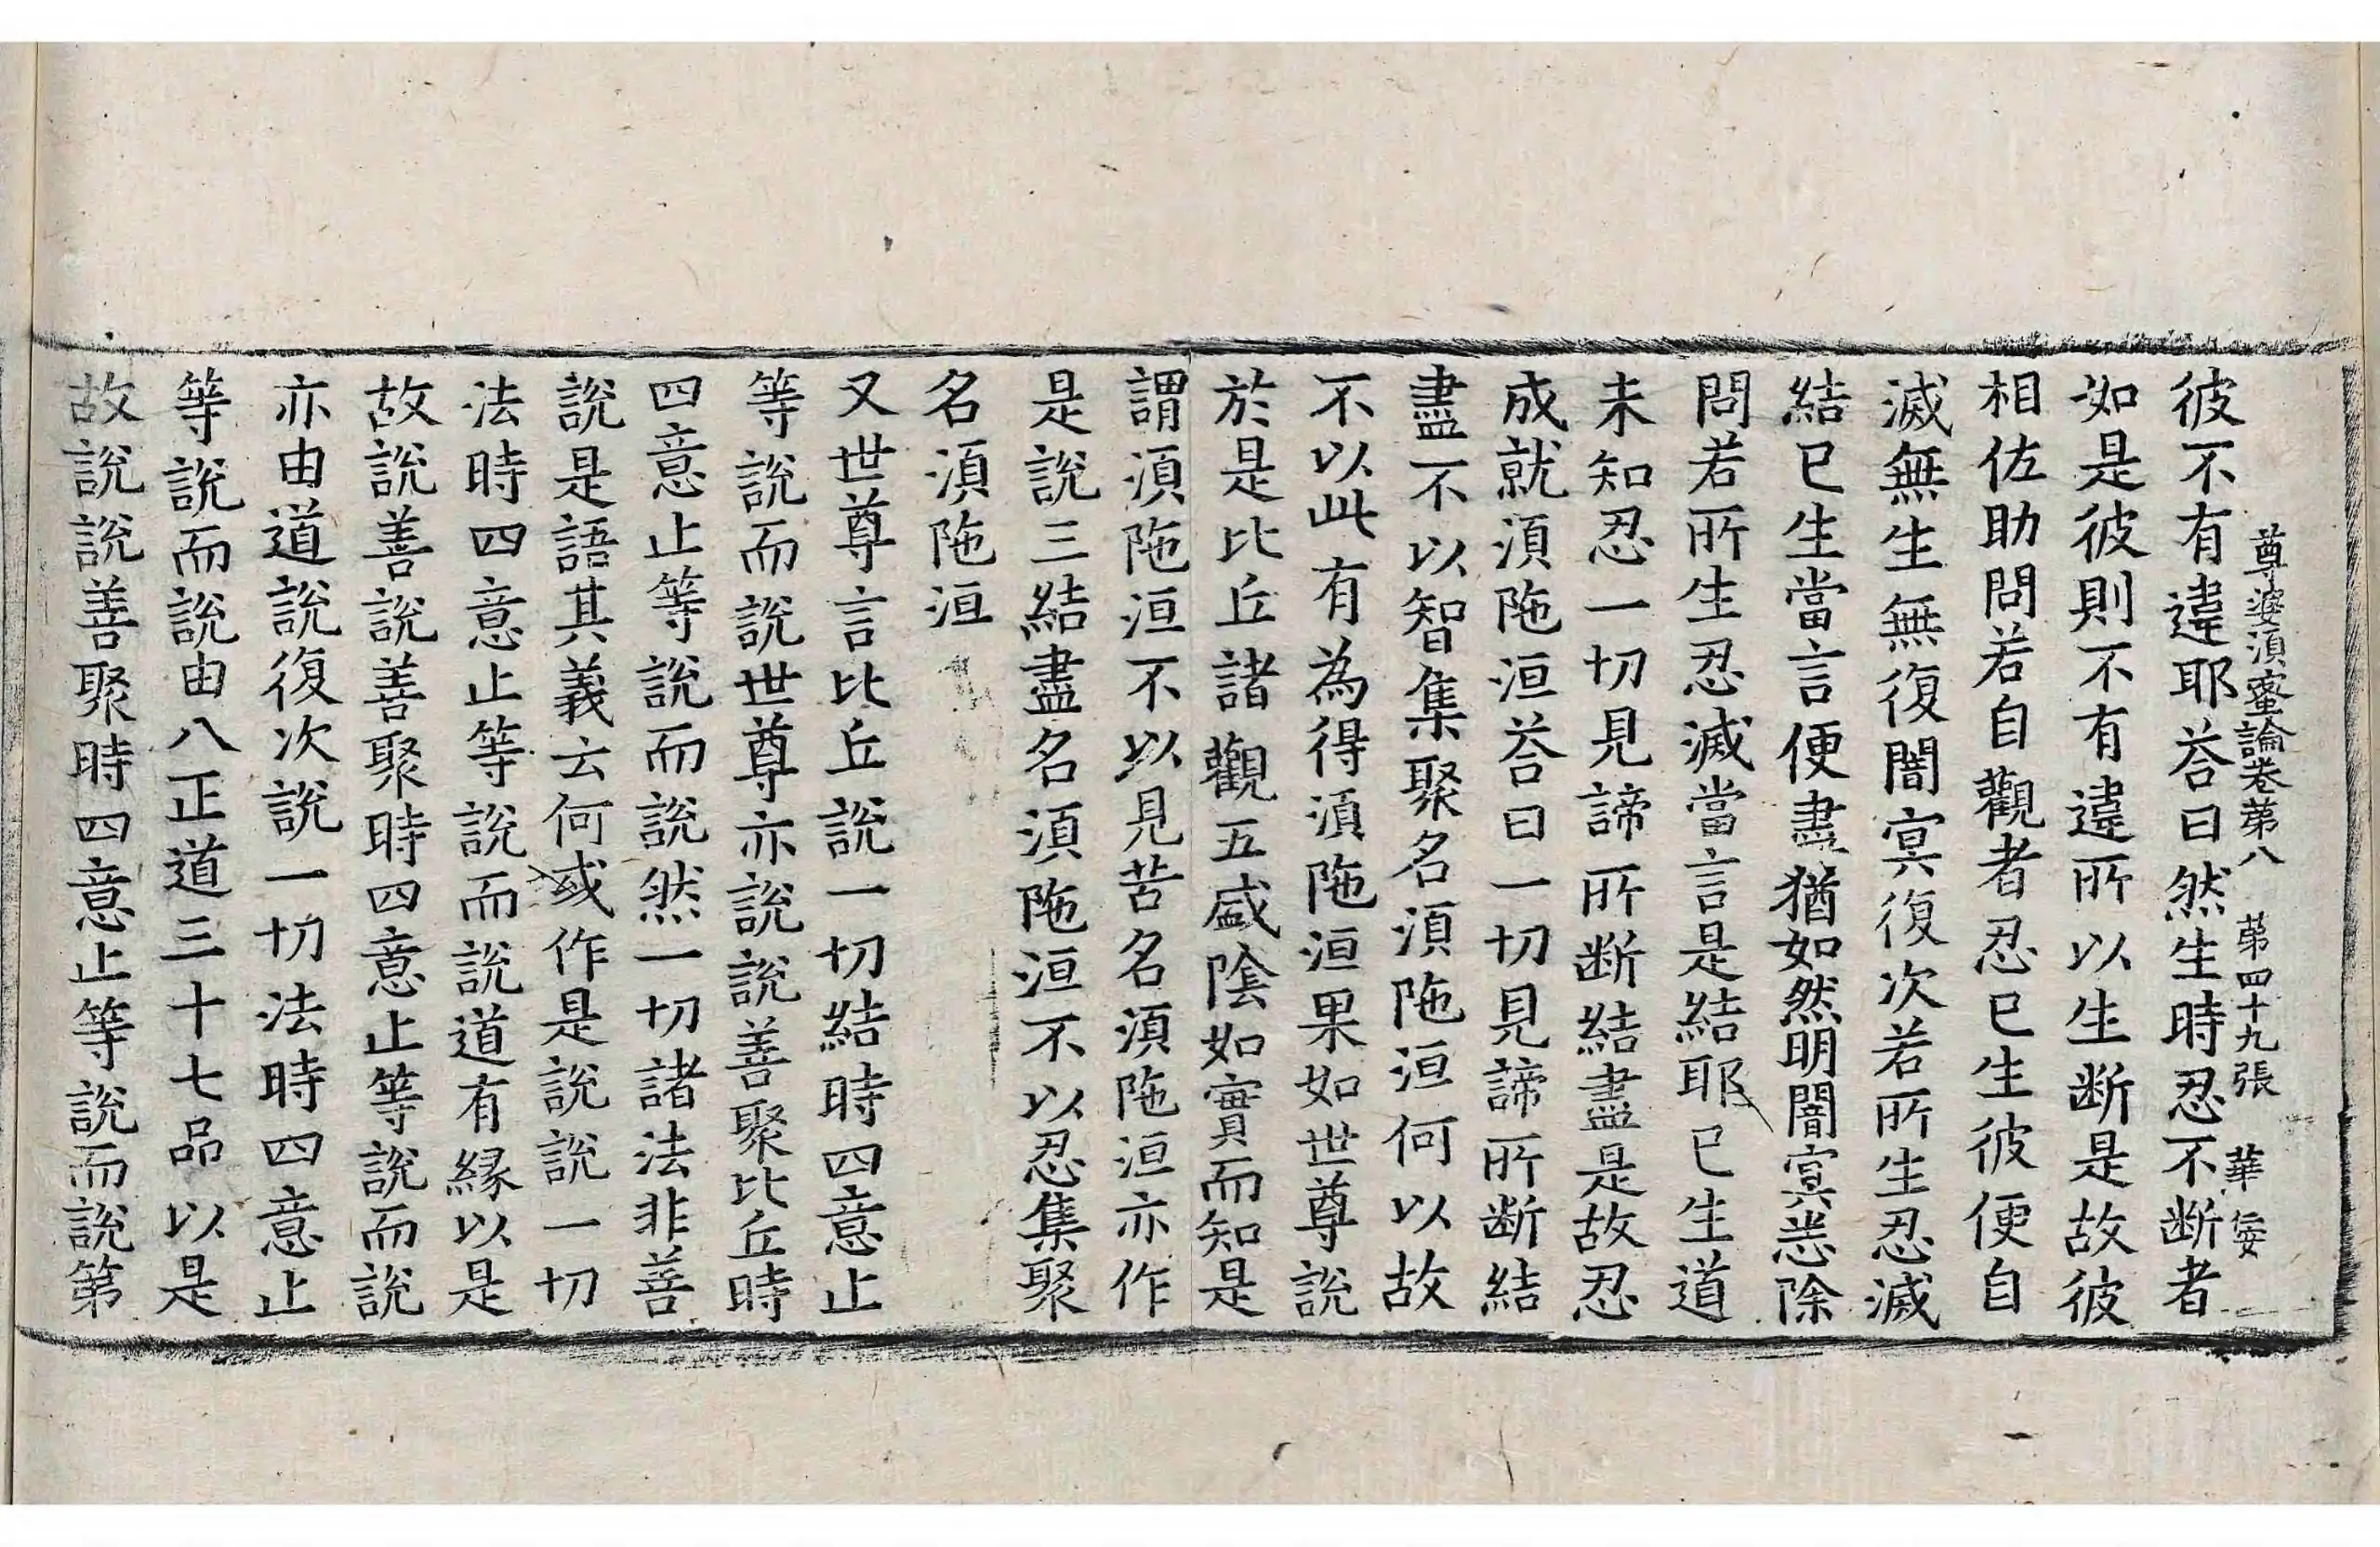 尊婆須蜜論卷第八 第四十九張 華
彼不有違耶荅曰然生時忍不断者
如是彼則不有違所以生断是故彼
相佐助問若自觀者忍已生彼便自
滅無生無復闇㝠復次若所生忍滅
結已生當言便盡猶如然明闇㝠悉除
問若所生忍滅當言是結耶已生道
未知忍一切見諦所断結盡是故忍
成就湏陁洹荅曰一切見諦所断結
盡不以智集聚名湏陁洹何以故
不以此有為得湏陁洹果如世尊說
於是比丘諸觀五盛陰如實而知是
謂湏陁洹不以見苦名湏陁洹亦作
是說三結盡名湏陁洹不以忍集聚
名湏陁洹
又世尊言比丘說一切結時四意止
等說而說世尊亦說說善聚比丘時
四意止等說而說然一切諸法非善
說是語其義云何或作是說說一切
法時四意止等說而說道有縁以是
故說善說善聚時四意止等說而說
亦由道說復次說一切法時四意止
等說而說由八正道三十七品以是
故說說善聚時四意止等說而說第